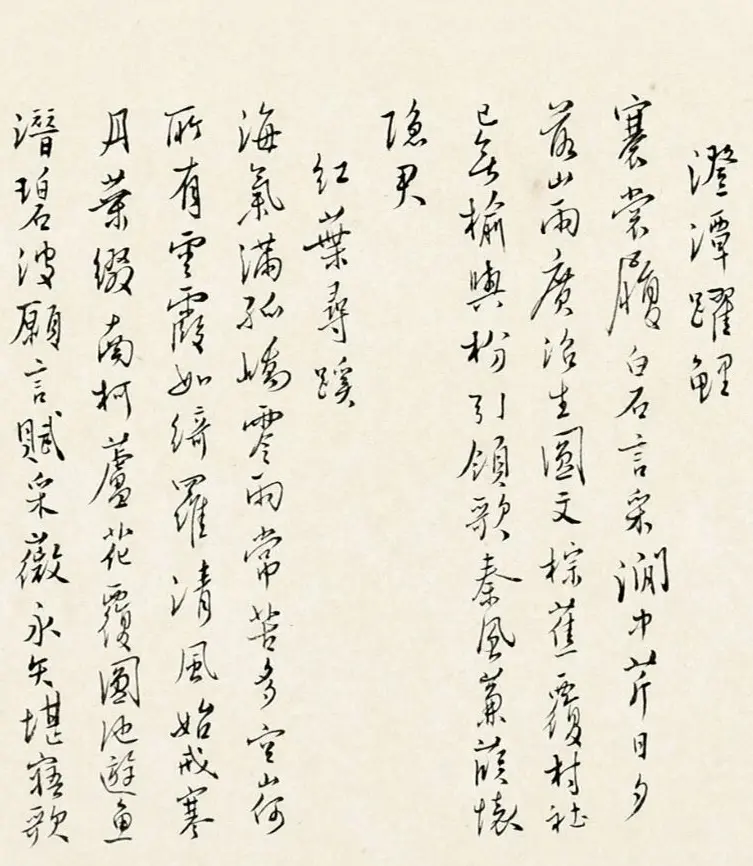 澄潭躍鯉
褰裳履白石言采澗中芹日夕
落山雨廣沼生圓文棕蕉覆村社
已無榆與枌引領歌秦風蒹葭懷
隐君
紅葉尋蹊
海氣滿孤嶠零雨常苦多空山何
所有雲霞如綺羅清風始戒寒
丹葉綴南柯蘆花覆圓池遊魚
潛碧波願言賦采薇永矢堪寤歌